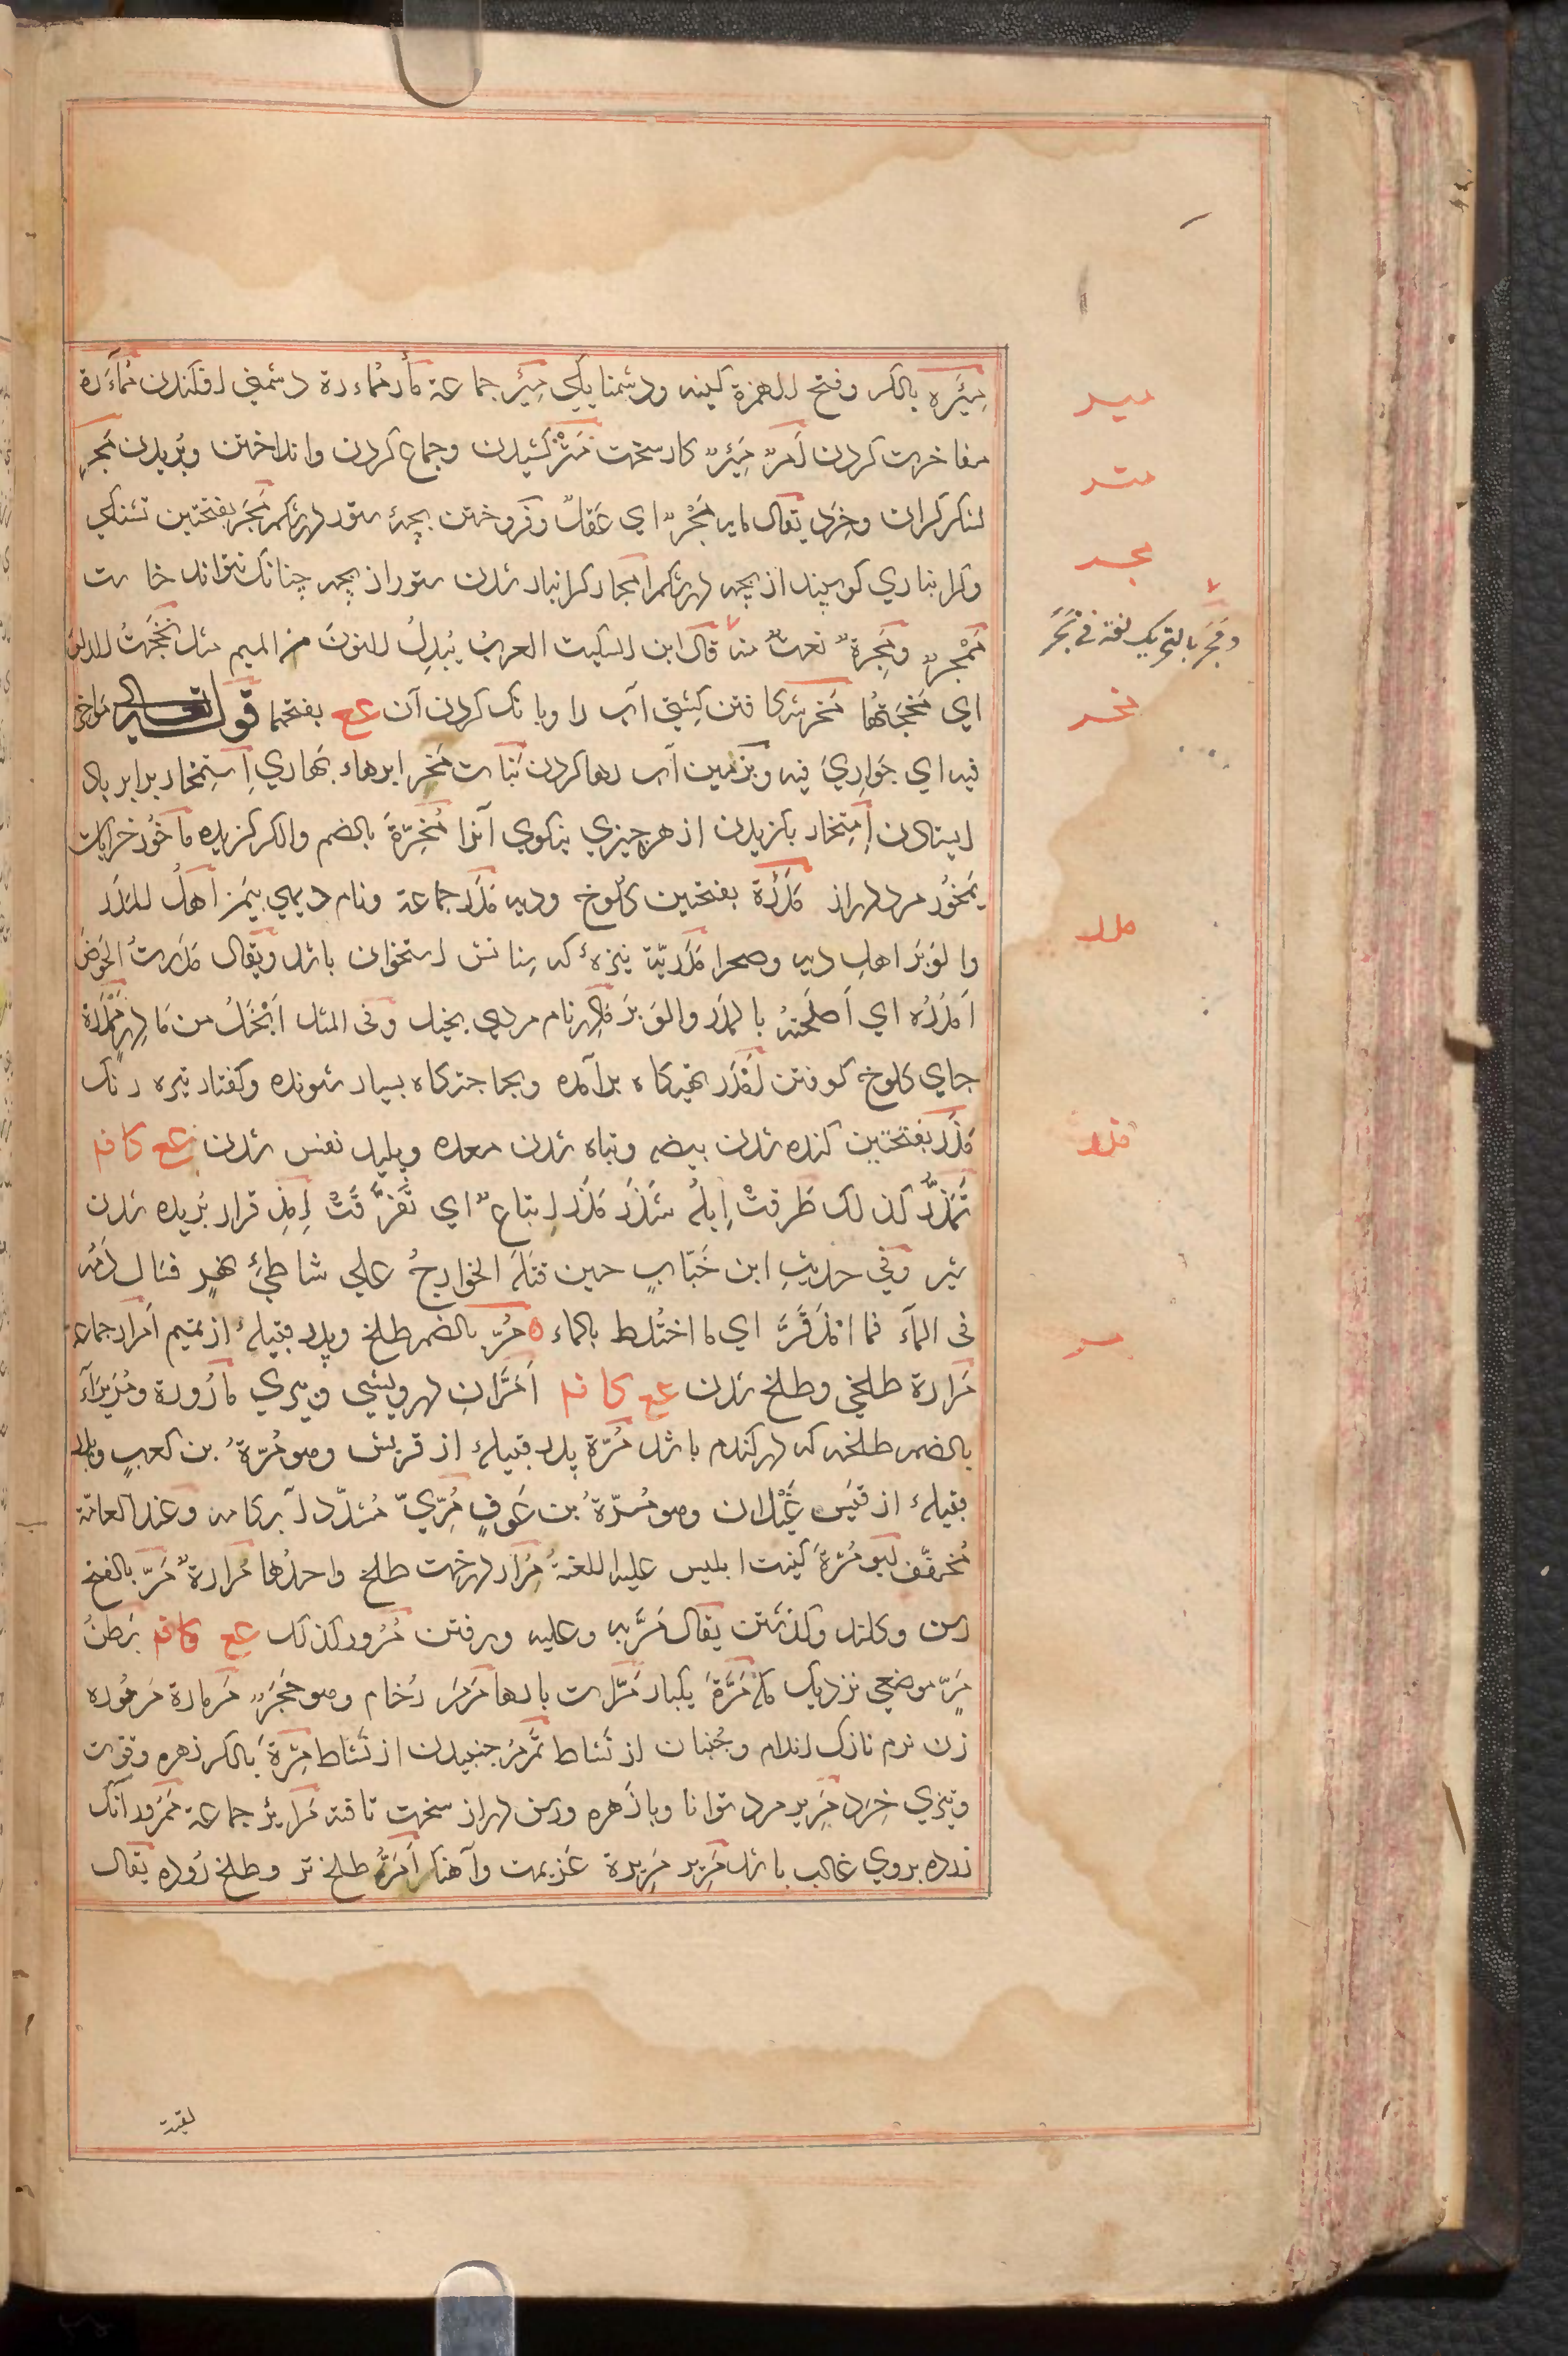 مِئَره بالکسر وفتح الهمزة کینه ودشمنایکی مِئَر جماعة مأر مُماءرة دشمنی افکندن مُمآءَرة
مفاخرت کردن اَمرٌ مَئِرٌ کار سخت مَتْرٌ کشیدن وجماع کردن وانداختن وبُریدن مَجْر
لشکر کران وخِرَد یقال ماله مَجْرٌ ای عَقلٌ وفروختن بچهٔ ستور در شکم مَجَر بفتحتین تشنکی
وکرانباری کوسپند از بچه در شکم امجار کرانبار شدن ستور از بچه چنانک نتواند خاست
مُمْجِرٌ ومَجِرَةٌ نعت منه قال ابن السکیت العربُ یُبدِلُ النونَ من المیم مثل نَخَجتُ الدلوَ
ای مَخَجتُها مَخر شکافتن کشتی آب را وبانک کردن آن عع بفتحهما قوله تعالی مَواخِر
فیه ای جَوارِیَ فیه وبزمین آب رها کردن بَنات مَخر ابرهاء بهاری اِستِمخار برابر باد
ایستادن اِمتِخار بکزیدن از هر چیزی بنکوی آنرا مُخْرَة بالضم والکسر کزیده ماخُور خرابات
یَمخُور مرد دراز مَدَرَة بفتحتین کلوخ ودیه مَدَر جماعة ونام دیهی بیَمَن اَهلُ المَدَر
والوَبَر اهل دیه وصحرا مَدَریّة نیزهٔ که سِنانش استخوان باشد ویقال مَدَرتُ الحَوضَ
اَمدُرُه ای اَصلَحتُه بالمَدَر والوَبَر مادِر نام مردی بخیل وفی المثل اَبْخَلُ من مَادِرٍ مَمدَرَة
جای کلوخ کوفتن اَمدَر تهیکاه برآمده وبجماجتر کاه بسیار شونده وکفتار تیره رنک
مَذَر بفتحتین کنده شدن بیضه وتباه شدن معده وپلید نفس شدن عع کافه
تَمَذُّر کذلک تفرقت اِبِلُه شَذَرَ مَذَرَ اتباعٌ ای تَفرَّقَتْ اِمذِقرار بُریده شدن
شیر وفی حدیث ابن خَبّاب حین قتله الخوارجُ علی شاطئِ نهر فسال دَمُه
فی المآء فما امذَقَرَّ ای ما اختلط بالماء ه مُرّ بالضم طلخ وپدر قبیلهٔ از تمیم اَمرار جماعة
مَرارة طلخی وطلخ شدن عع کافه اَمَرّانِ درویشی وپیری مارُورة ومُرَیراَء
بالضم طلخه که در کندم باشد مُرّة پدر قبیلهٔ از قریش وهو مُرّةُ بن کعبٍ وپدر
قبیلهٔ از قَیس غَیْلان وهو مُرّةُ بن عَوفٍ مُرِّیّ مُشدّد آبکامه وعند العامّة
مُخفّف ابو مُرّة کنیت ابلیس علیه اللعنة مُرار درخت طلخ واحدُها مُرارةٌ مَرّ بالفتح
رسن وکلند وکذشتن یقال مَرَّ به وعلیه ورفتن مُرور کذلک عع کافه بَطنُ
مَرّ موضعی نزدیک مکه مَرَّة یکبار مَرّات بارها مَرمَر رُخام وهو حَجَرٌ مَرمارة مَرمُوره
زن نرم نازک اندام وجُنبان از نَشاط تَمَرمُر جنبیدن از نشاط مِرَّة بالکسر زهره وقوت
وتیزی خِرَد مَرِیر مرد توانا وبا زَهره ورسن دراز سخت تافته مَرایر جماعة مَمرُور آنک
زرداب بروی غالب باشد مَرِیر مَرِیرة عَزیمت وآهنک اَمَرّ طلخ تر وطلخ رُوده یقال
لقیت
میر
متر
مجر
ومَجَر بالتحریک لغة فی مَجْر
مخر
مدر
مذر
مر